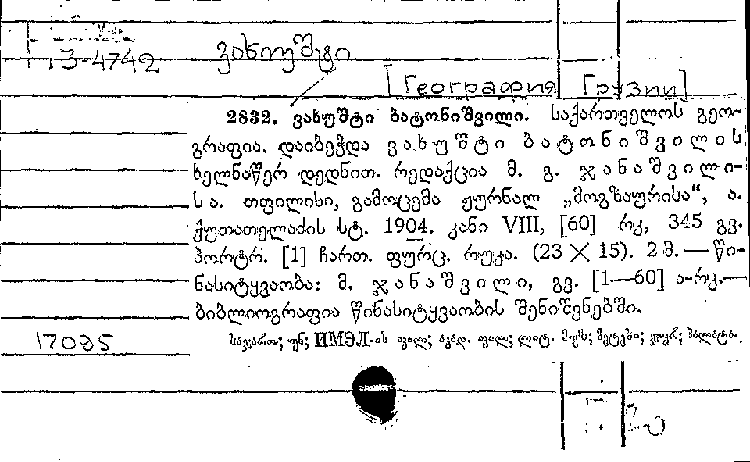 13-4742 ვახუშტი
[География Грузии]
2832. ვახუშტი ბატონიშვილი. საქართველოს გეო-
გრაფია. დაიბეჭდა ვახუშტი ბატონიშვილის
ხელნაწერ დედნით. რედაქცია მ. გ. ჯანაშვილი-
სა. თფილისი, გამოცემა ჟურნალ „მოგზაურისა“, ა.
ქუთათელაძის სტ. 1904. კანი VIII, [60] რკ, 345 გვ.
პორტრ. [1] ჩართ. ფურც. რუკა. (23 X 15). 2 მ. — წი-
ნასიტყვაობა: მ. ჯანაშვილი, გვ. [1—60] ა-რკ.—
ბიბლიოგრაფია წინასიტყვაობის შენიშვნებში.
საჯარო; უნ; ИМЭЛ-ის ფილ; აკად. ფილ; ლიტ. მუზ;
17085